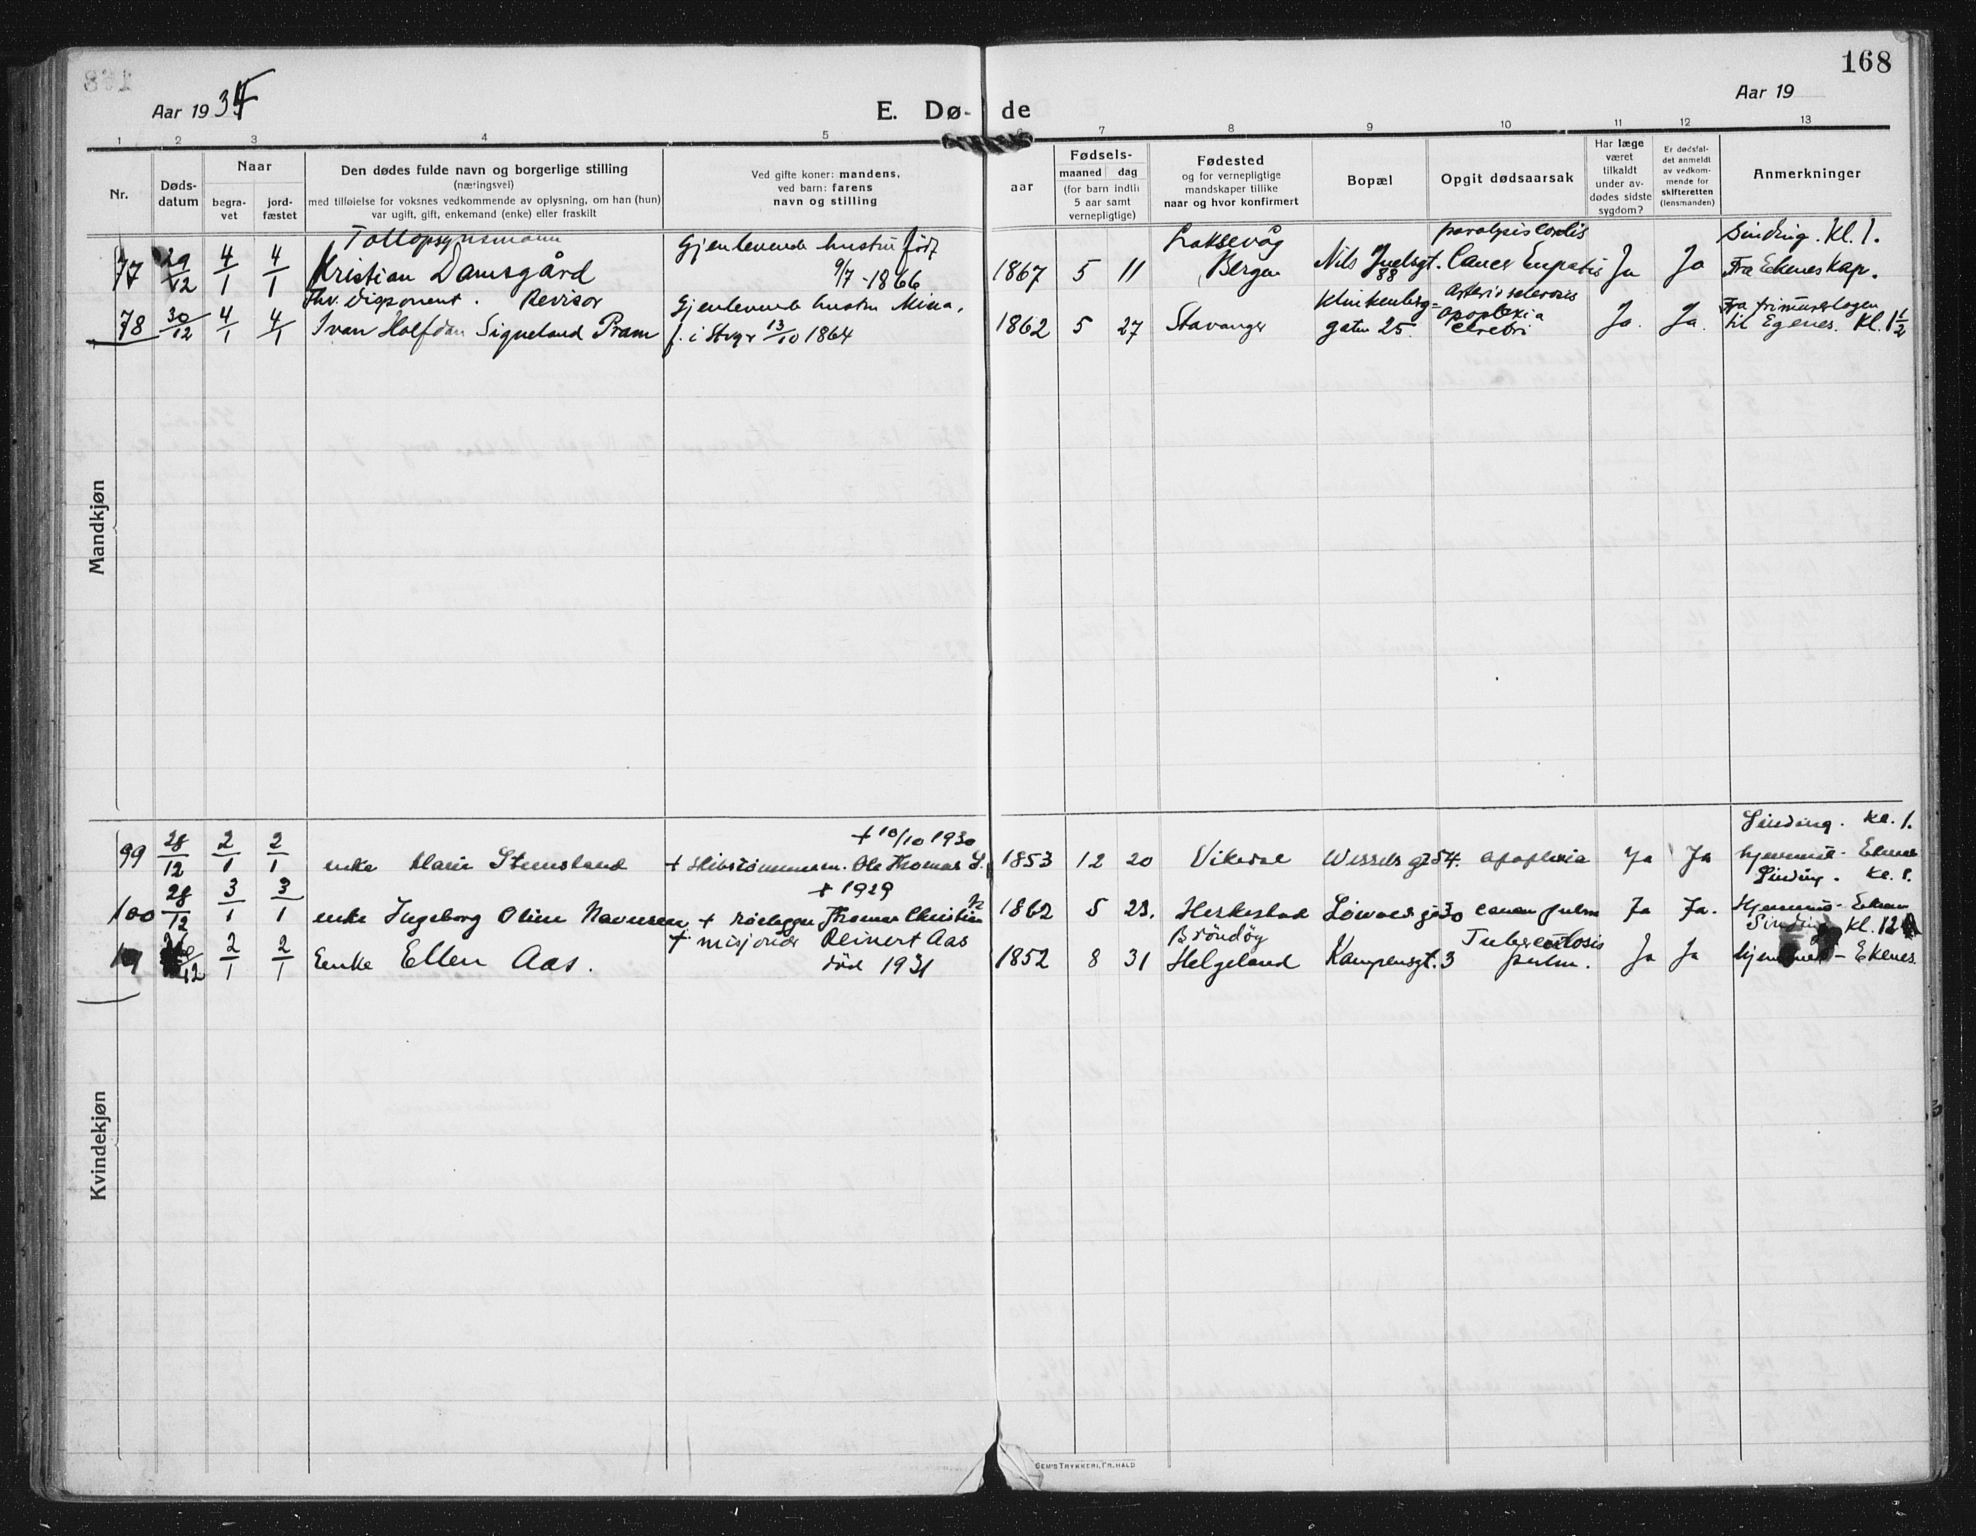 168
Aar 1934
E. Dø- de
Aar 19
1 2 3 4 5 6 7 8 9 10 11 12 13
Nr.
Døds-
datum
Naar
begra-
vet
jord-
fæstet
Den dødes fulde navn og borgerlige stilling
(næringsvei)
med tilføielse for voksnes vedkommende av oplysning, om han (hun)
var ugift, gift, enkemand (enke) eller fraskilt
Ved gifte koner: mandens,
ved barn: farens
navn og stilling
aar
Fødsels-
maaned dag
(for barn indtil
5 aar samt
vernepligtige)
Fødested
og for vernepligtige
mandskaper tillike
naar og hvor konfirmert
Bopæl
Opgit dødsaarsak
Har læge
været
tilkaldt
under av-
dødes sidste
sygdom?
Er dødsfal-
det anmeldt
av vedkom-
mende for
skifteretten
(lensmanden)
Anmerkninger
Mandkjøn
Tollopsynsmann Gjenlevende hustru født Laksevåg paralysis cordis Sinding. Kl. 1.
77 29/12 4/1 4/1 Kristian Damsgård 9/7-1866 1867 5 11 Bergen Nils Juelsgt. 88 Cancer Ja Ja Fra Ekenes Kap.
fhv. disponent. Revisor Gjenlevende hustru Mina, Klinkenberg- Arteriosclerosis Fra frimurerlogen
78 30/12 4/1 4/1 Ivan Halfdan Signeland Pram f. i Stvgr 13/10 1864 1862 5 27 Stavanger gaten 25. apoplexia cerebri Ja. Ja. til Egenes. Kl. 1 1/2
Kvindekjøn
+ 10/10 1930 Sinding. Kl. 1.
99 28/12 2/1 2/1 enke Marie Stensland + Ole Thomas S. 1853 12 20 Vikedal Wesselsgt 54. apoplexia Ja Ja hjemmet - Ekenes
+ 1929 Sinding. Kl. 1.
100 28/12 3/1 3/1 enke Ingeborg Oline + Thomas Christian 1862 5 23. Heskestad 30 cancer pulm Ja Ja. Hjemmet - Ekenes
+ misjonær Reinert Aas Brönöy Tuberculosis Sinding Kl. 12
2/1 2/1 Enke Ellen Aas. död 1931 1852 8 31 Helgeland Kampensgt. 3 pulm. Ja Ja hjemmet - Ekenes.
SEM'S TRYKKERI, FR. HALD